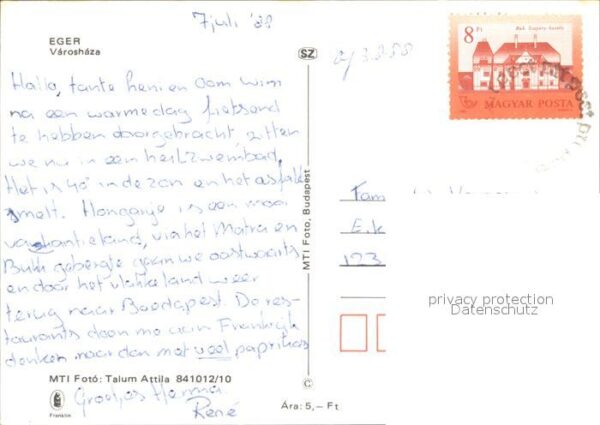 7 juli '88
EGER
Városháza
SZ
8 Ft
Buk. Szapáry-kastély
MAGYAR POSTA
Hallo, tante heni en Oom Wim
na een warme dag fietsend
te hebben doorgebracht, zitten
we nu in een heel zwembad.
Het is 40° in de zon en het asfalt
smelt. Hongarije is een mooi
vakantieland, via het Matra en
Bukk gebergte gaan we oostwaarts
en door het vlakke land weer
terug naar Boedapest. De res-
taurants doen me aan Frankrijk
denken maar dan met veel paprikas
Groetjes Herma
René
MTI Foto, Budapest
Fam
E.k
123
privacy protection
Datenschutz
MTI Fotó: Talum Attila 841012/10
Franklin
©
Ára: 5,– Ft